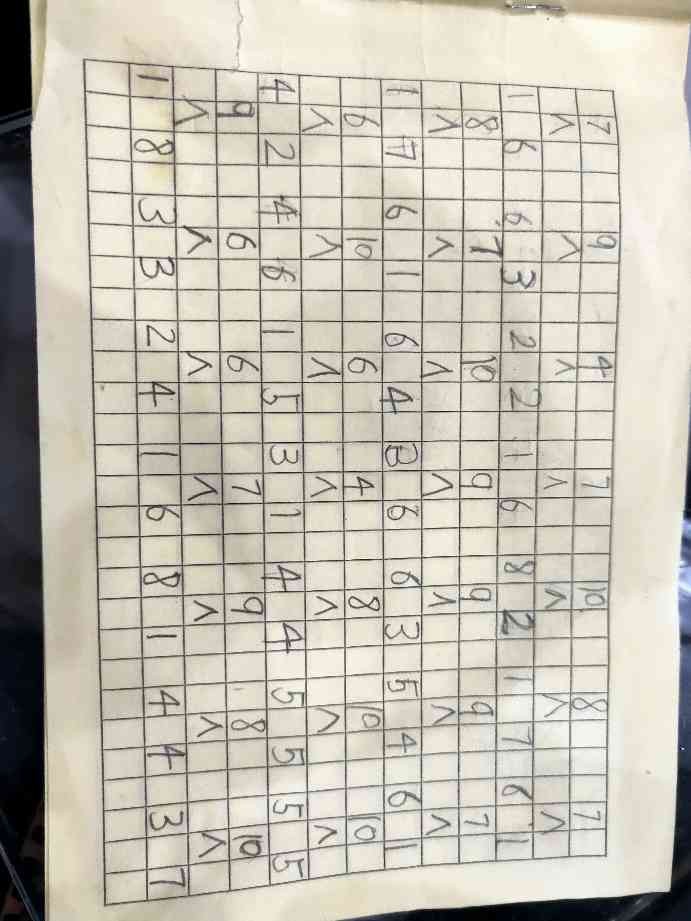 7 9 4 7 10 8 7
∧ ∧ ∧ ∧ ∧ ∧ ∧
1 6 6 3 2 2 1 6 8 2 1 7 6 1
8 7 10 9 9 9 7
∧ ∧ ∧ ∧ ∧ ∧ ∧
1 7 6 1 6 4 3 6 6 3 5 4 6 1
6 10 6 4 8 10 10
∧ ∧ ∧ ∧ ∧ ∧ ∧
4 2 4 6 1 5 3 1 4 4 5 5 5 5
9 6 6 7 9 8 10
∧ ∧ ∧ ∧ ∧ ∧ ∧
1 8 3 3 2 4 1 6 8 1 4 4 3 7